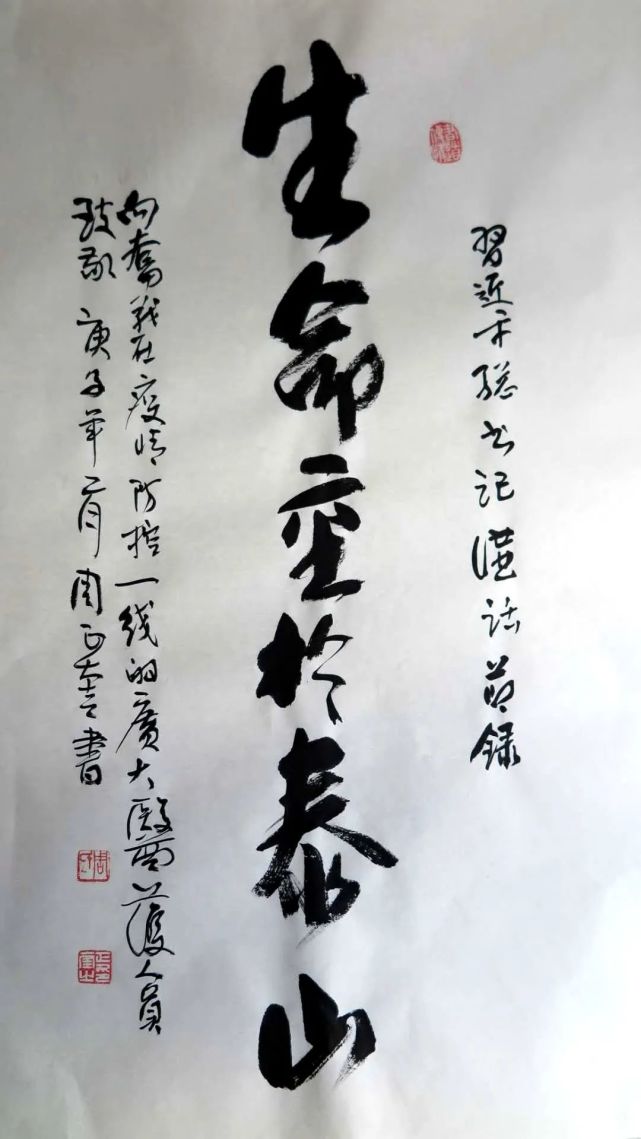 習近平総书记講話節録
生命重於泰山
向奮战在疫情防控一线的廣大醫護人員
致敬 庚子年二月 周正奎書